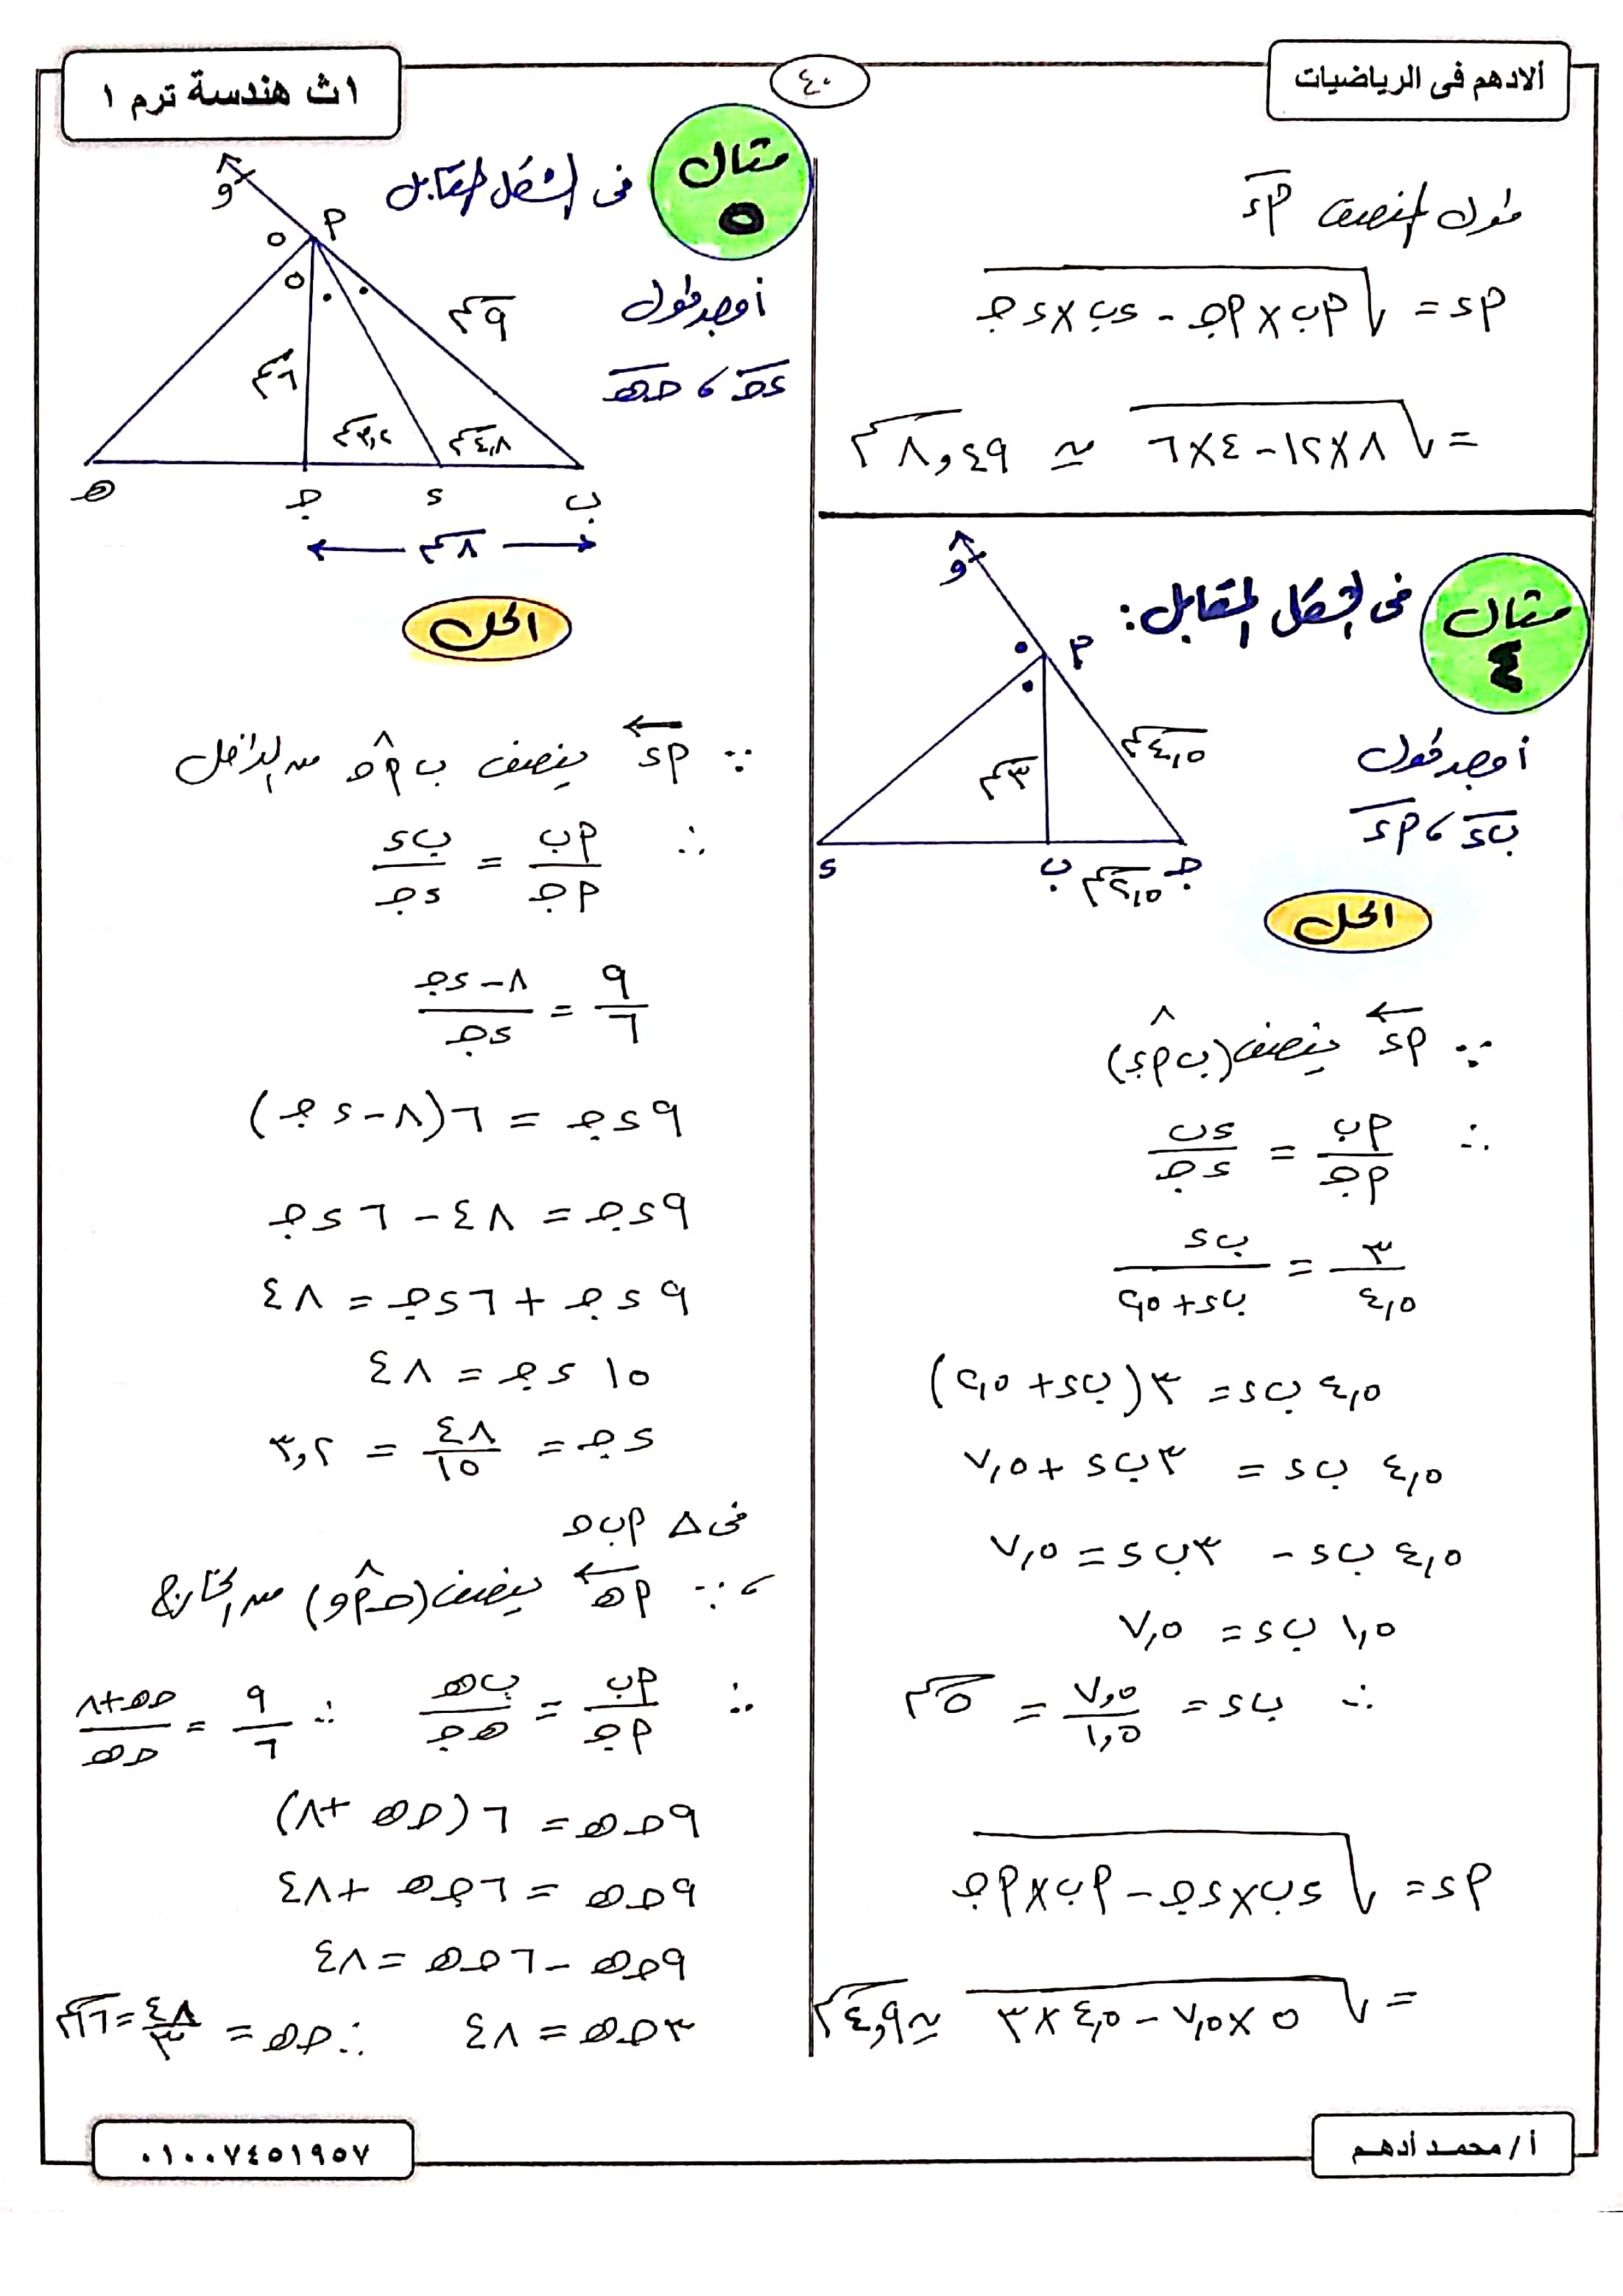 ألادهم فى الرياضيات
٤٠
١ث هندسة ترم ١
طول المنصف أد
أد = √(أب × أجـ - دب × دجـ)
= √(٨ × ١٢ - ٤ × ٦) ≃ ٨,٤٩ سم
مثال ٤
فى الشكل المقابل:
أوجد طول
بد ، أد
و
أ
٤,٥ سم
٣ سم
د
ب
٢,٥ سم
جـ
الحل
∵ أد ينصف (ب أ و)
∴ أب/أجـ = دب/دجـ
٣/٤,٥ = ب د/(ب د + ٢,٥)
٤,٥ ب د = ٣(ب د + ٢,٥)
٤,٥ ب د = ٣ ب د + ٧,٥
٤,٥ ب د - ٣ ب د = ٧,٥
١,٥ ب د = ٧,٥
∴ ب د = ٧,٥/١,٥ = ٥ سم
أد = √(دب × دجـ - أب × أجـ)
= √(٥ × ٧,٥ - ٤,٥ × ٣) ≃ ٤,٩ سم
مثال ٥
فى الشكل المقابل
أوجد طول
دجـ ، جـهـ
و
أ
٩ سم
٦ سم
٣,٢ سم
٤,٨ سم
هـ
جـ
د
ب
٨ سم
الحل
∵ أد ينصف ب أ جـ من الداخل
∴ أب/أجـ = ب د/دجـ
٩/٦ = (٨ - دجـ)/دجـ
٩ دجـ = ٦(٨ - دجـ)
٩ دجـ = ٤٨ - ٦ دجـ
٩ دجـ + ٦ دجـ = ٤٨
١٥ دجـ = ٤٨
دجـ = ٤٨/١٥ = ٣,٢
فى △ أب جـ
، ∵ أهـ ينصف (جـ أ و) من الخارج
∴ أب/أجـ = ب هـ/هـ جـ ∴ ٩/٦ = (جـهـ + ٨)/جـهـ
٩ جـهـ = ٦(جـهـ + ٨)
٩ جـهـ = ٦ جـهـ + ٤٨
٩ جـهـ - ٦ جـهـ = ٤٨
٣ جـهـ = ٤٨ ∴ جـهـ = ٤٨/٣ = ١٦ سم
أ/ محمد أدهم
٠١٠٠٧٤٥١٩٥٧